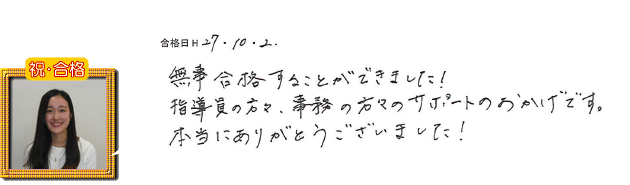 合格日H27.10.2.
祝・合格
無事合格することができました!
指導員の方々、事務の方々のサポートのおかげです。
本当にありがとうございました!